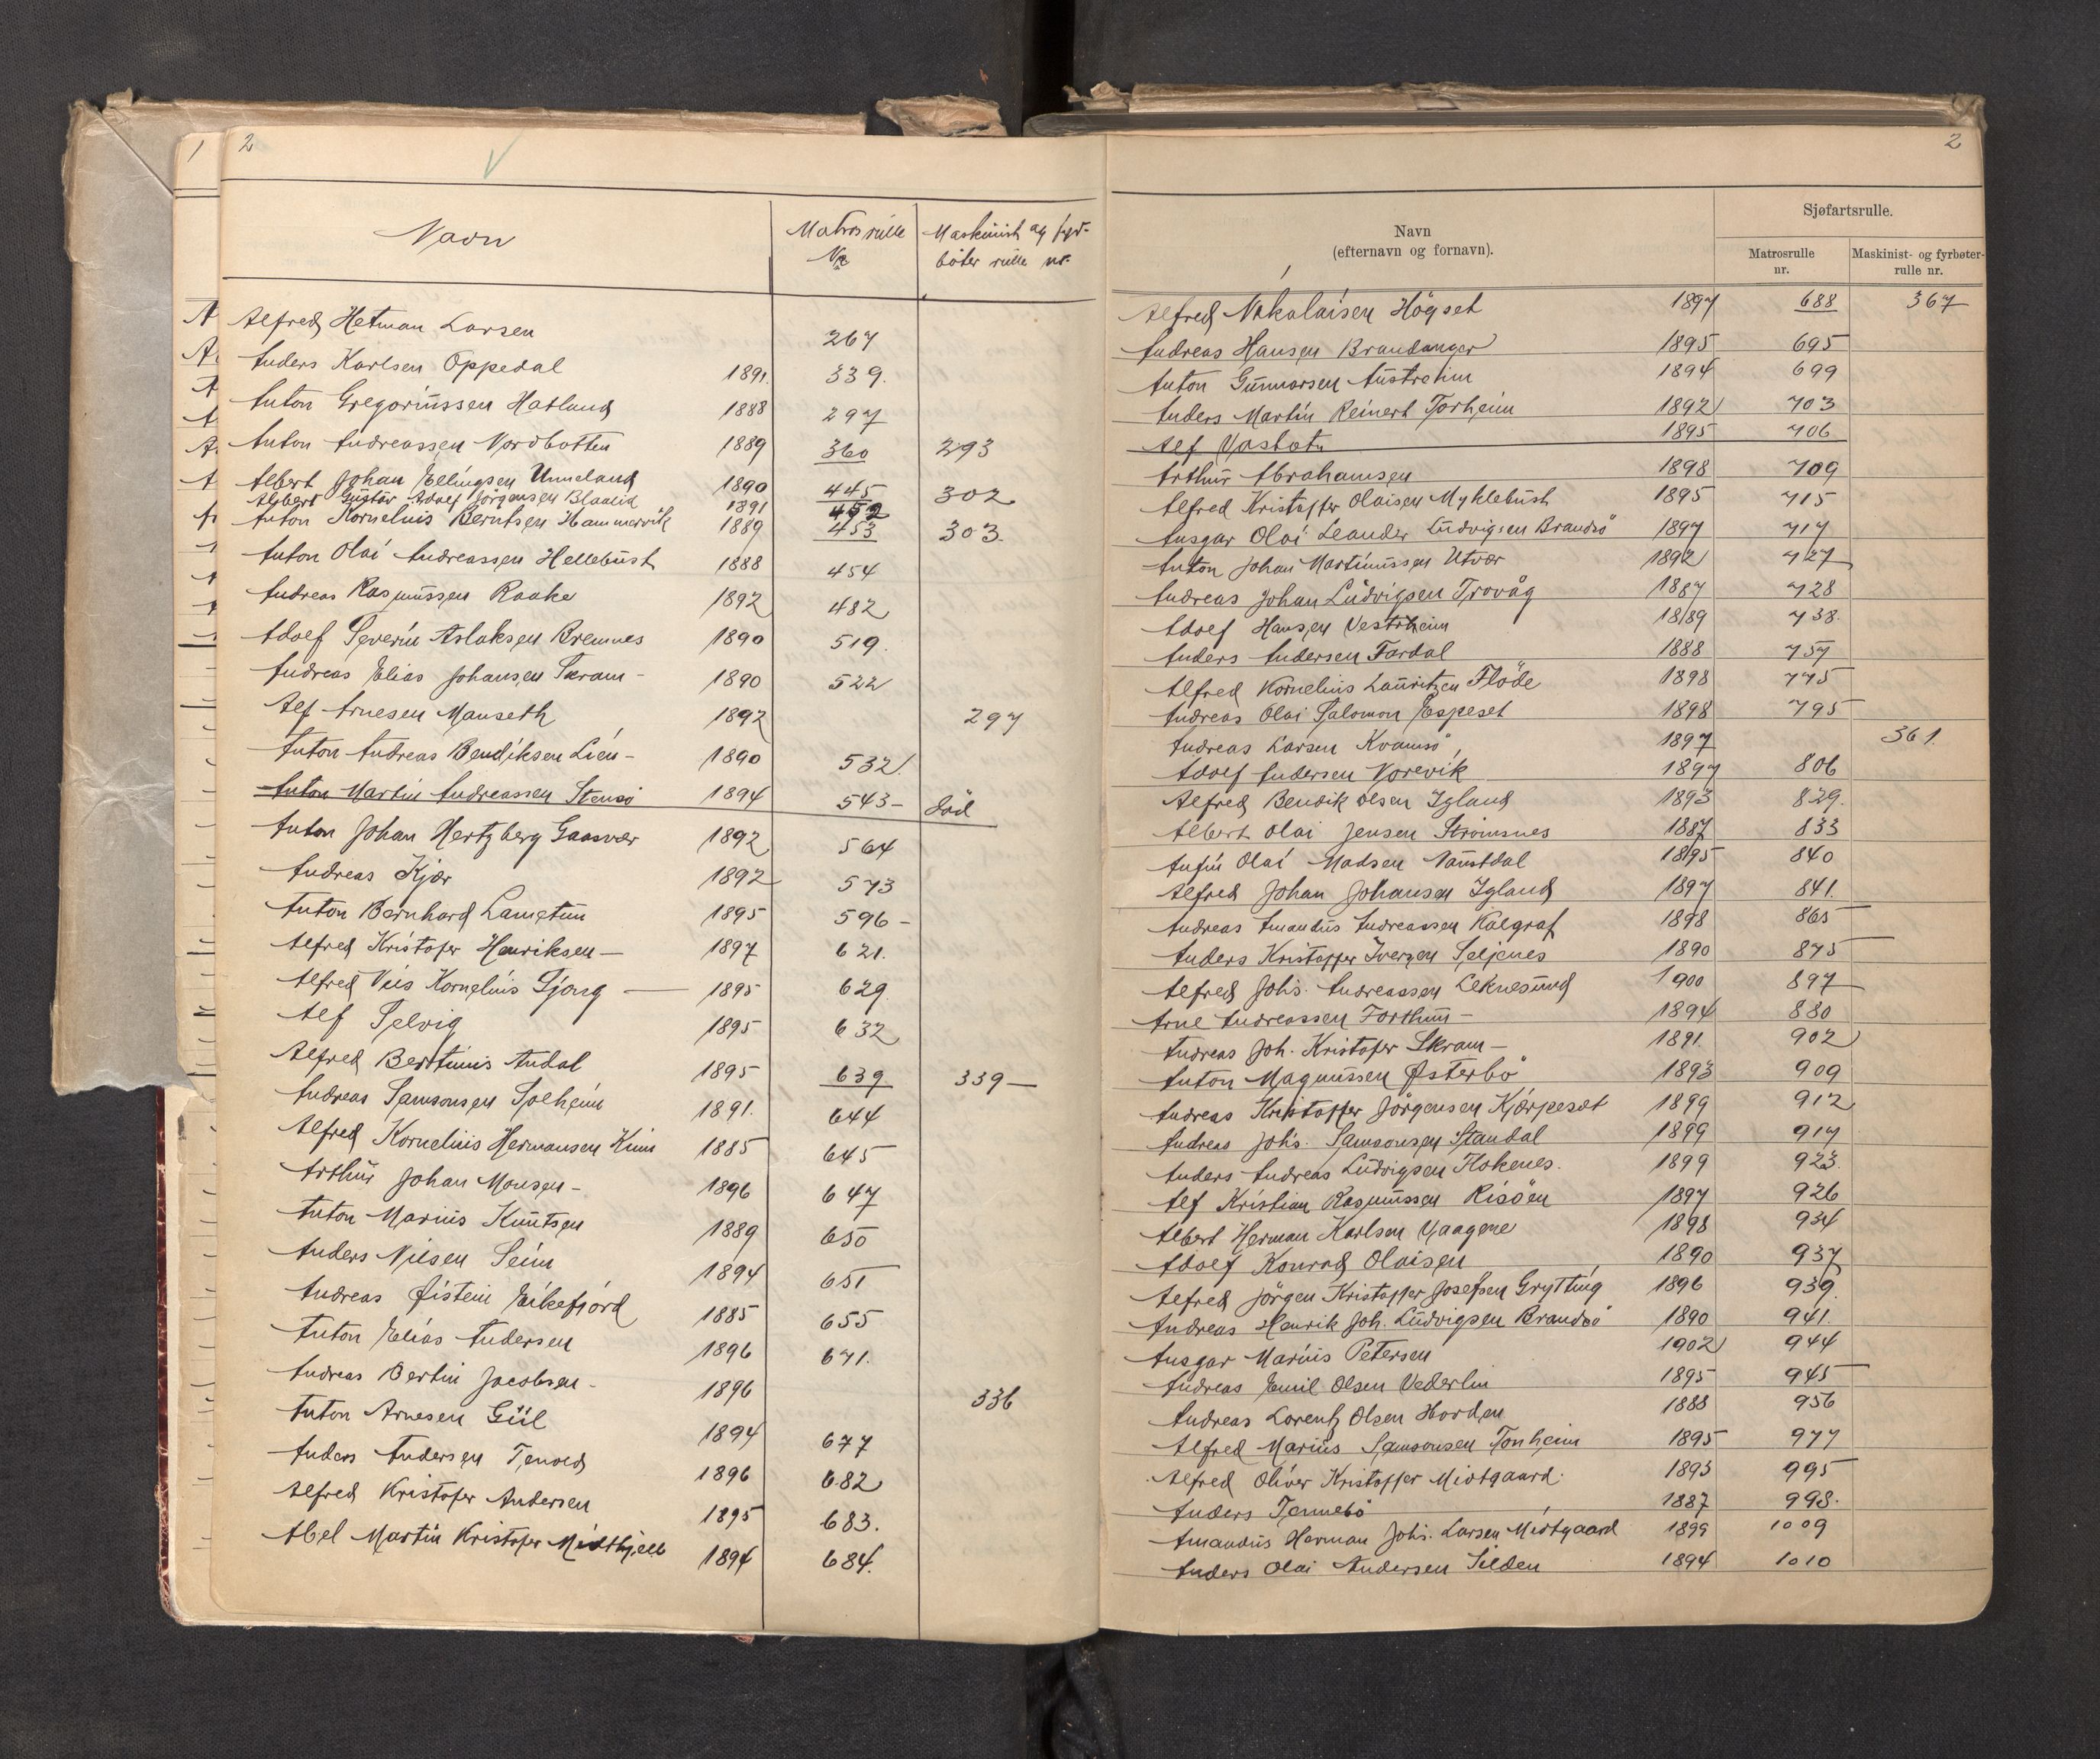 1
2
Navn Matrosrulle Nr Maskinist og fyr-
bøter rulle nr.
Alfred Hetman Larsen 267
Anders Karlsen Oppedal 1891. 339.
Anton Gregoriussen Hatland 1888 297
Anton Andreassen Nordbotten 1889 360 293
Albert Johan Ellingsen Unneland 1890 445 302
Albert Gustav Adolf Jörgensen Blaalid 1891 452
Anton Kornelius Berntsen Hammervik 1889 453 303.
Anton Olai Andreassen Hellebust 1888 454
Andreas Rasmussen Raake 1892 482
Adolf Severin Aslaksen Bremnes 1890 519.
Andreas Elias Johansen Skram - 1890 522
Alf Arnesen Manseth 1892 297
Anton Andreas Bendiksen Lien - 1890 532.
Anton Martin Andreassen Stensö 1894 543 - död
Anton Johan Hertzberg Gaasvær 1892 564
Andreas Kjær 1892 573
Anton Bernhard Lametun 1895 596 -
Alfred Kristofer Henriksen — 1897 621.
Alfred Kornelius — 1895 629
Alf Selvig 1895 632
Alfred Bertinius Aadal 1895 639 339 —
Andreas Samsonsen Solheim 1891. 644
Alfred Kornelius Hermansen Kinn 1885 645
Arthur Johan Monsen - 1896 647
Anton Marius Knutsen 1889 650
Anders Nilsen Seim 1894 651
Andreas Øistein Eikefjord 1885 655
Anton Elias Andersen 1896 671.
Andreas Bertin Jacobsen - 1896 336
Anton Arnesen Gül 1894 677
Anders Andersen Tenold 1896 682
Alfred Kristofer Andersen 1895 683.
Abel Martin Kristofer Midthjell 1894 684.
2
Navn
(efternavn og fornavn).
Sjøfartsrulle.
Matrosrulle
nr.
Maskinist- og fyrbøter-
rulle nr.
Alfred Nikolaisen Högset 1897 688 367
Andreas Hansen Brandanger 1895 695
Anton Gunnarsen Austreim 1894 699
Anders Martin Reinert Torheim 1892 703
Alf Vasbotn 1895 706
Arthur Abrahamsen 1898 709
Alfred Kristoffer Olaisen Myklebust 1895 715
Ansgar Olai Leander Ludvigsen Brandsö 1897 717
Anton Johan Martinussen Utvær 1892 727
Andreas Johan Ludvigsen Trovåg 1887 728
Adolf Hansen Vestrheim 1889 738.
Anders Andersen Fardal 1888 757
Alfred Kornelius Lauritzen Flöde 1898 775
Andreas Olai Salomon Espeset 1898 795
Andreas Larsen Kvamsö 1897 361.
Adolf Andersen Norevik 1897 806
Alfred Bendik Olsen Igland 1893 829.
Albert Olai Jensen Strömsnes 1887 833
Anfin Olai Madsen Naustdal 1895 840
Alfred Johan Johansen Igland 1897 841.
Andreas Amandus Andreassen Kalgraf 1898 865
Anders Kristoffer Iversen Seljenes 1890 875
Alfred Johs. Andreassen Leknesund 1900 897
Arne Andreassen Forthun - 1894 880
Andreas Joh. Kristofer Skram - 1891. 902
Anton Magnussen Østerbö 1893 909
Andreas Kristoffer Jörgensen Kjörpeset 1899 912
Andreas Johs. Samsonsen Standal 1899 917
Anders Andreas Ludvigsen Flokenes. 1899 923.
Alf Kristian Rasmussen Risöen 1897 926
Albert Herman Karlsen Vaagene 1898 934
Adolf Konrad Olaisen 1890 937
Alfred Jörgen Kristoffer Josefsen Grytting 1896 939.
Andreas Henrik Joh. Ludvigsen Brandsö 1890 941.
Ansgar Marius Petersen 1902 944
Andreas Emil Olsen Vederlin 1895 945
Andreas Lorentz Olsen Horden 1888 956
Alfred Marius Samsonsen Tonheim 1895 977
Alfred Oliver Kristoffer Midtgaard. 1893 995
Anders Tennebö 1887 998.
Amandus Herman Johs. Larsen Midtgaard 1899 1009
Anders Olai Andersen Silden 1894 1010